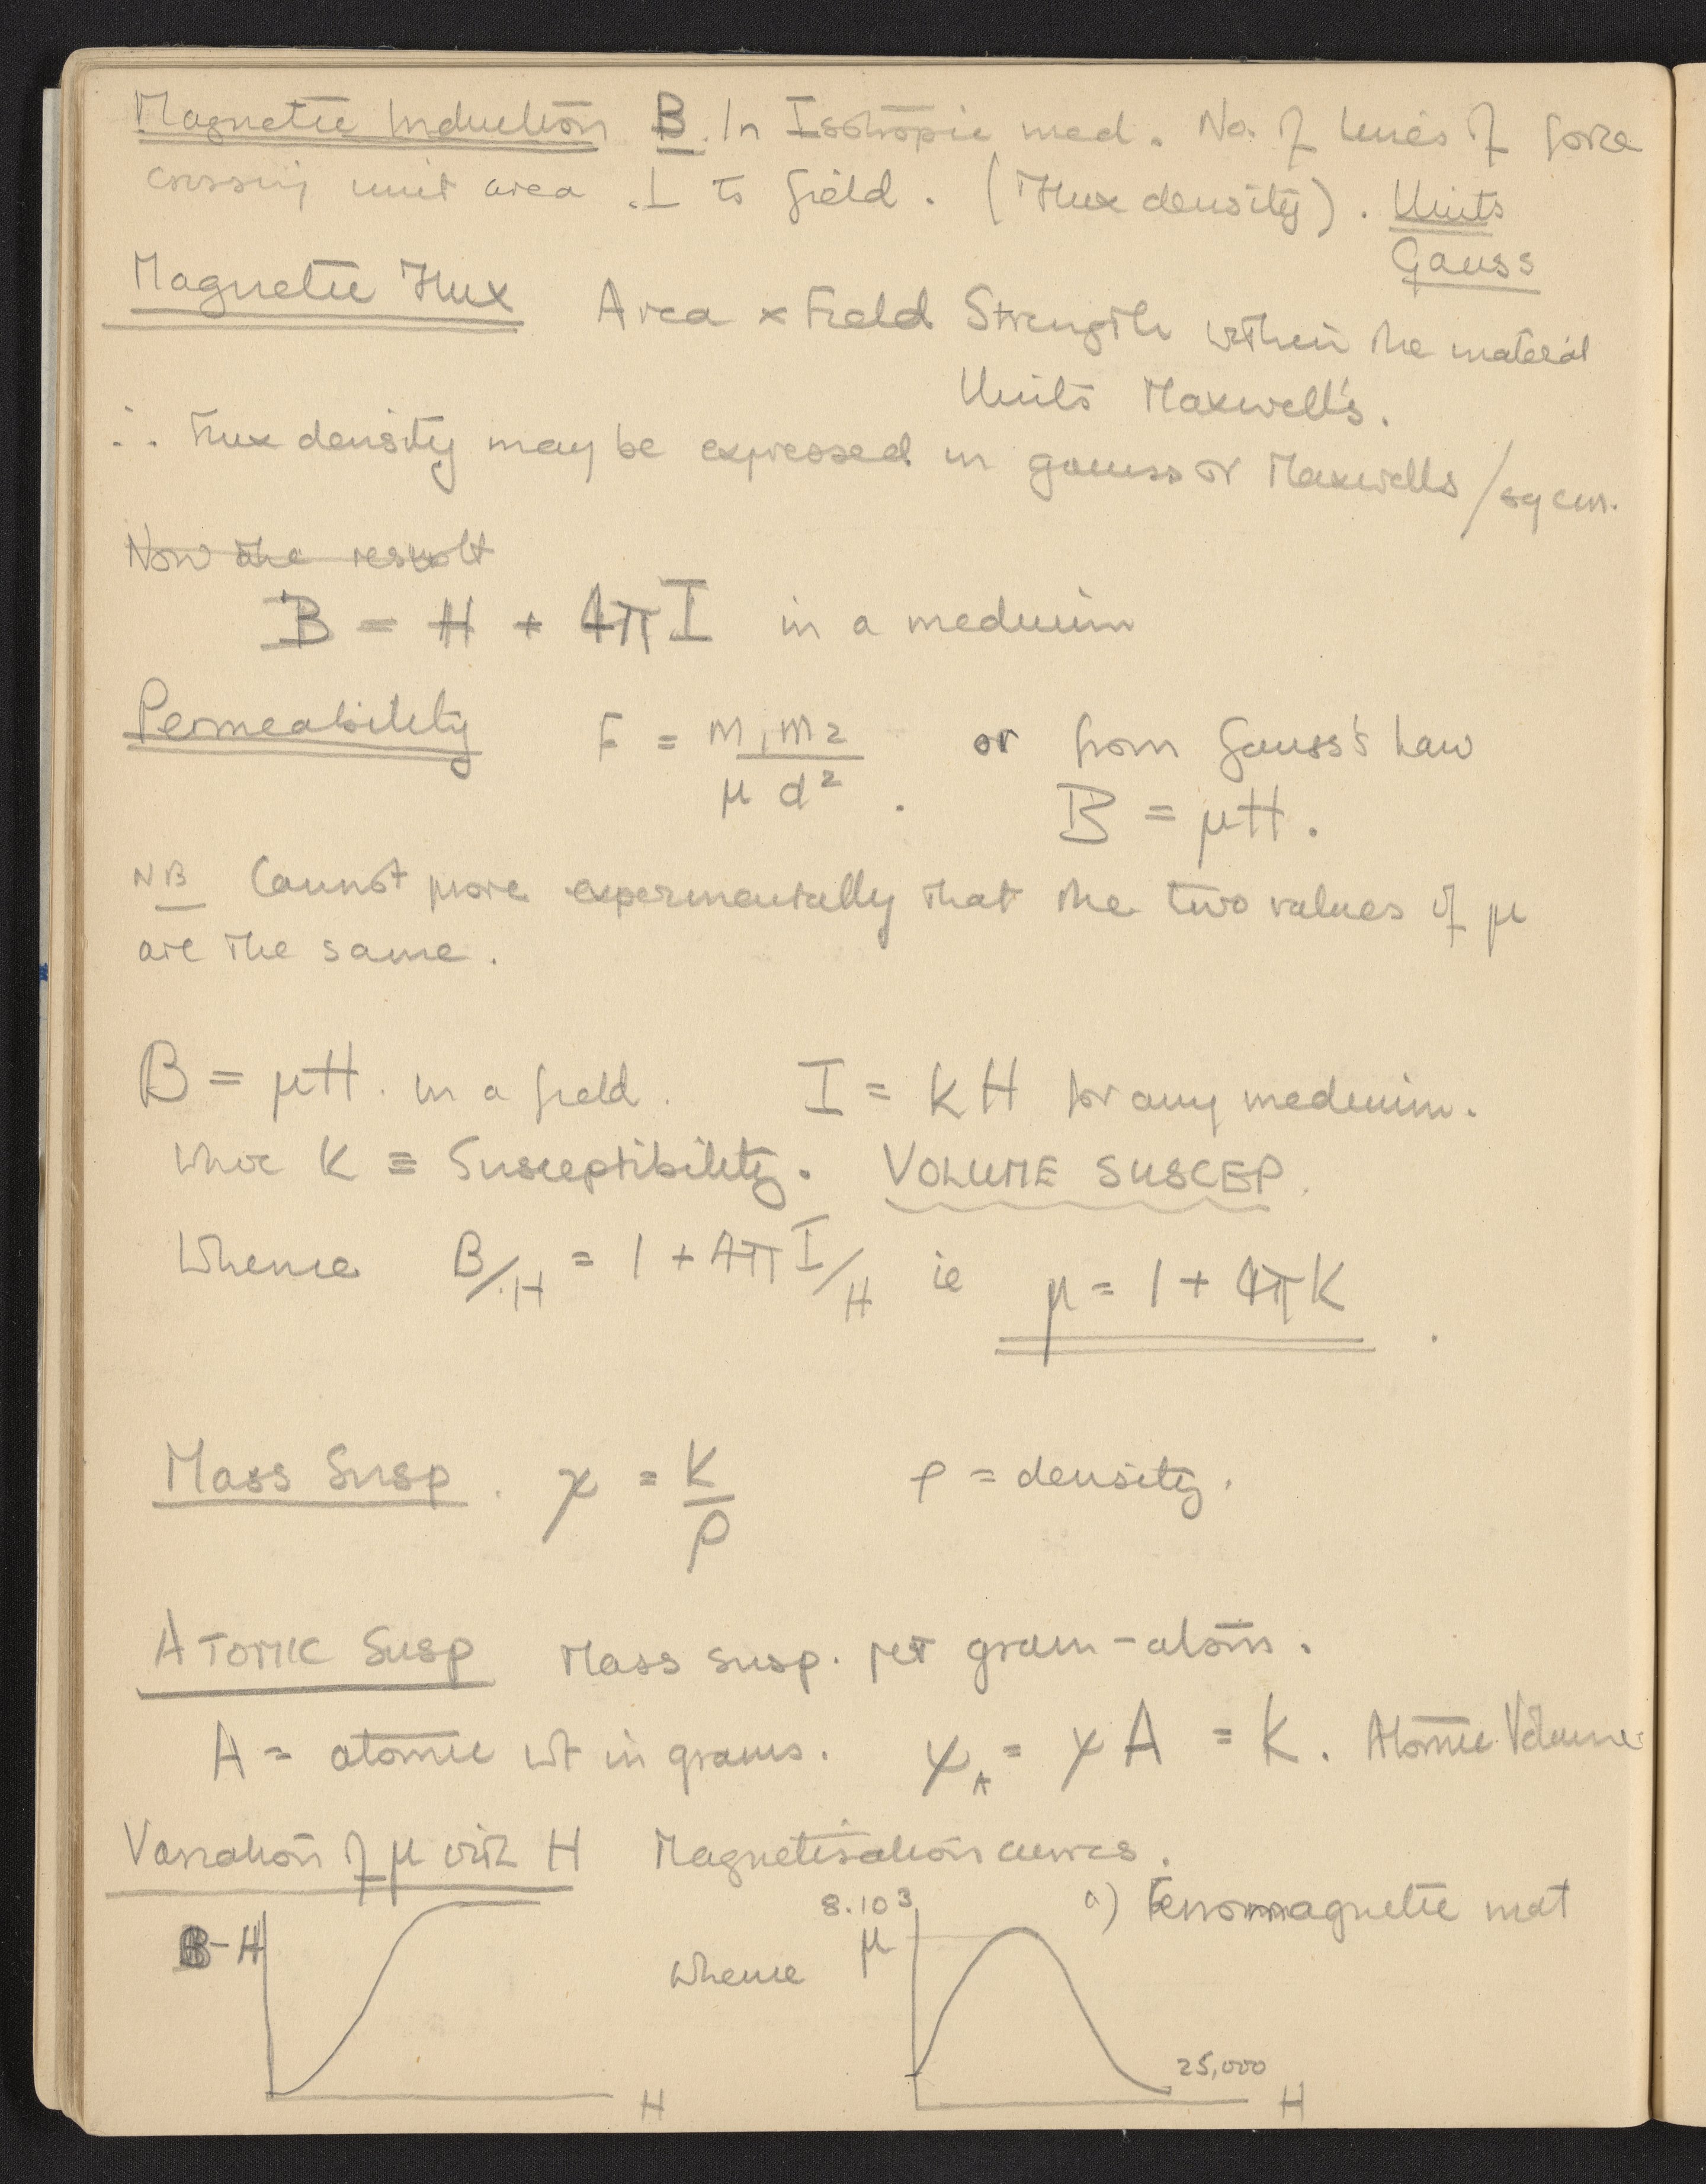 Magnetic Induction B. In Isotropic med. No. of lines of force
crossing unit area ⊥ to field. (Flux density). Units
Gauss
Magnetic Flux Area × Field Strength within the material
Units Maxwell's.
∴ Flux density may be expressed in gauss or Maxwells/sq cm.
Now the result
B = H + 4πI in a medium
Permeability F = m₁m₂ / μd². or from Gauss's Law
B = μH.
NB Cannot prove expermentally that the two values of μ
are the same.
B = μH. in a field. I = KH for any medium.
where K ≡ Susceptibility. VOLUME SUSCEP.
Whence B/H = 1 + 4πI/H ie μ = 1 + 4πK
Mass Susp. χ = K/ρ ρ = density.
ATOMIC Susp Mass susp. per gram-atom.
A = atomic wt in grams. χ_A = χA = K. Atomic Volume
Variation of μ with H Magnetisation curves.
8.10³ a) Ferromagnetic mat
B-H μ
Whence
25,000
H H